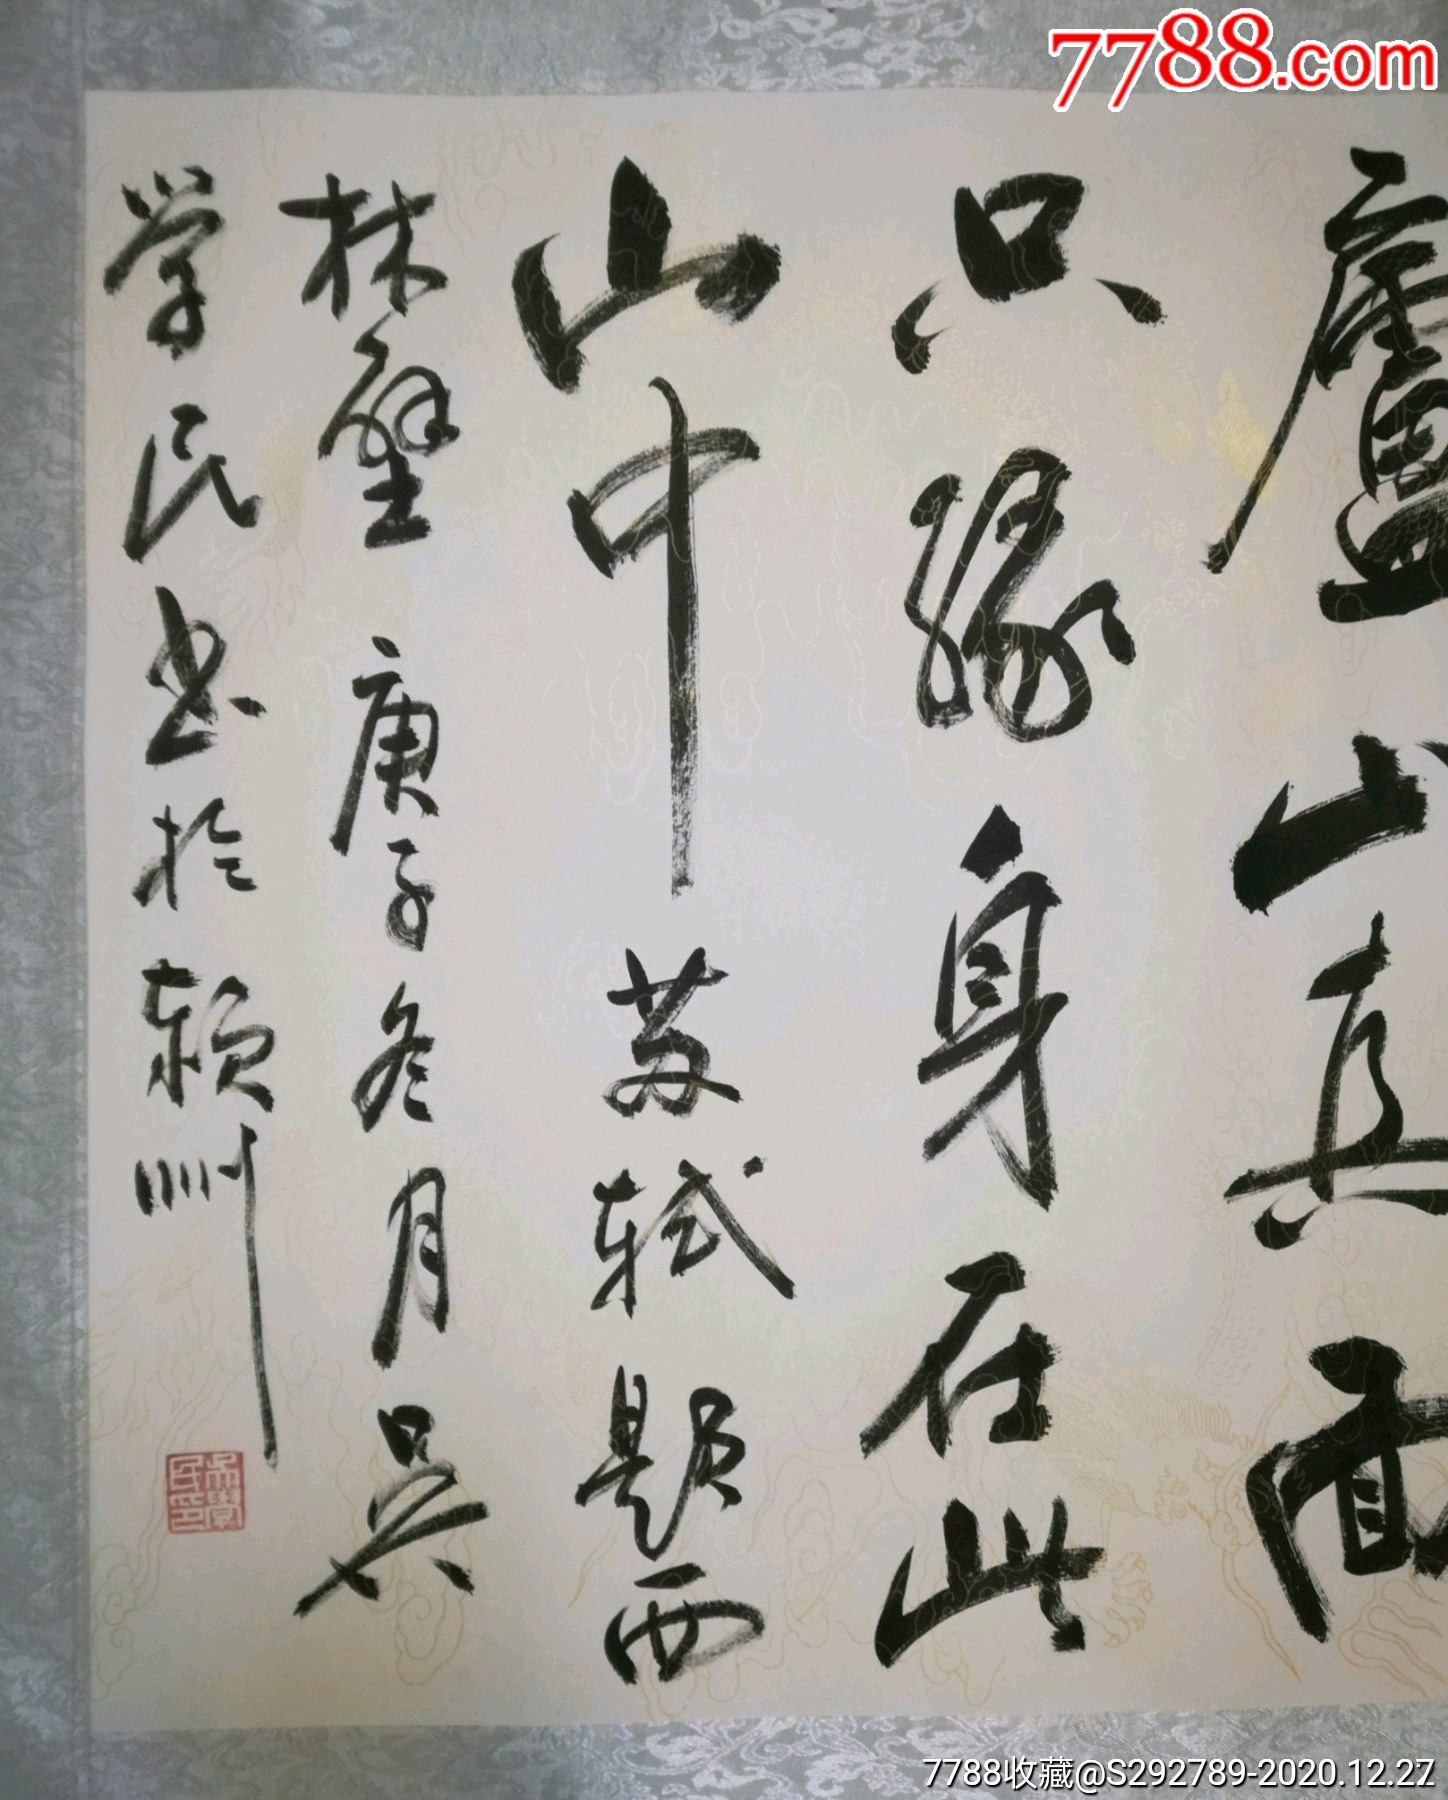 7788.com
廬山真面
只緣身在此
山中 苏轼題西
林壁 庚子冬月吴
学民书於颖州
7788收藏@S292789-2020.12.27